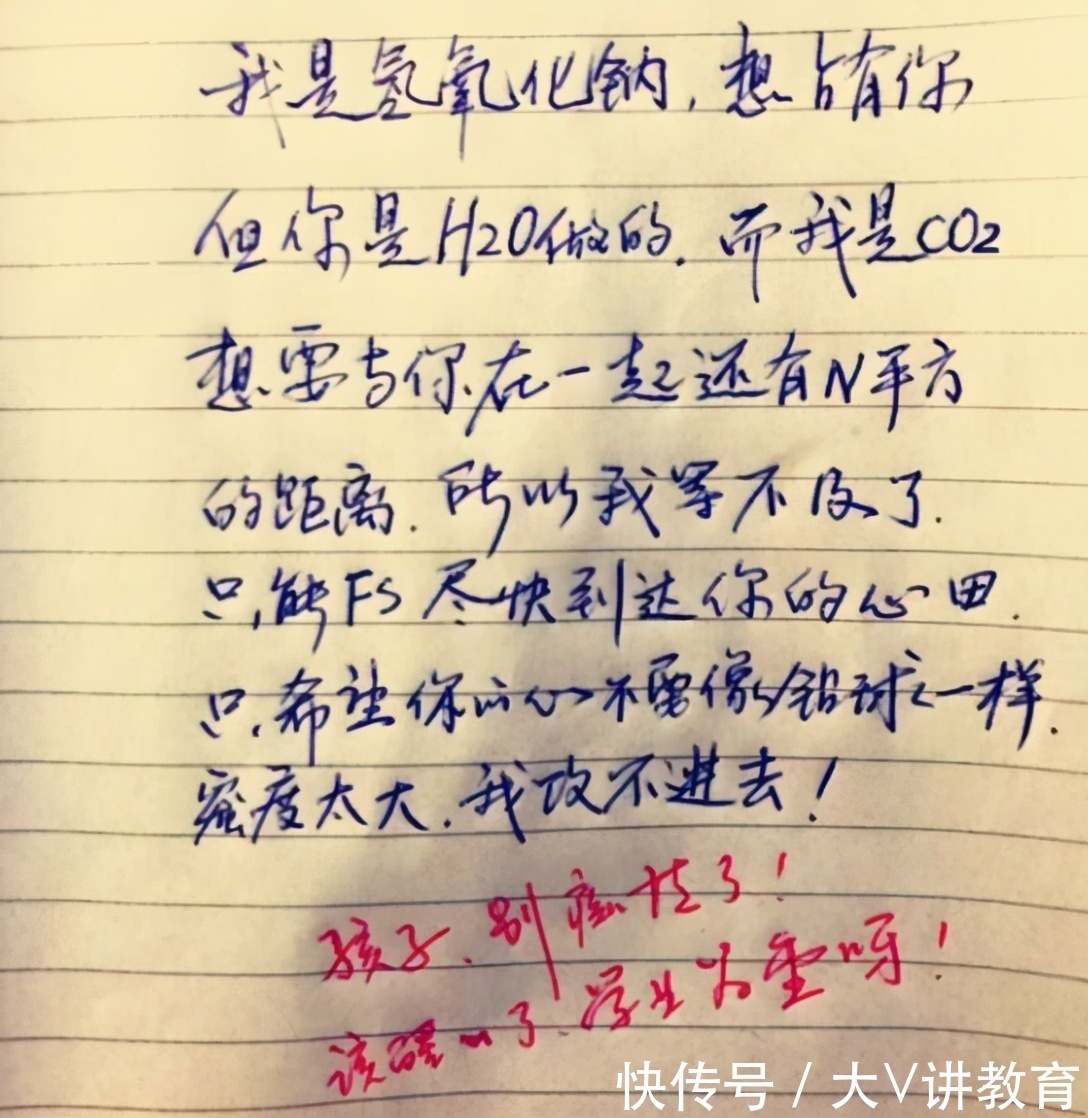 我是氢氧化钠,想占有你
但你是H2O做的.而我是CO2
想要与你在一起还有N平方
的距离.所以我等不及了.
只能FS尽快到达你的心田.
只希望你的心不要像铅球一样.
密度太大.我攻不进去!
孩子、别痴情了!
该醒醒了、学业为重呀!
快传号 / 大V讲教育